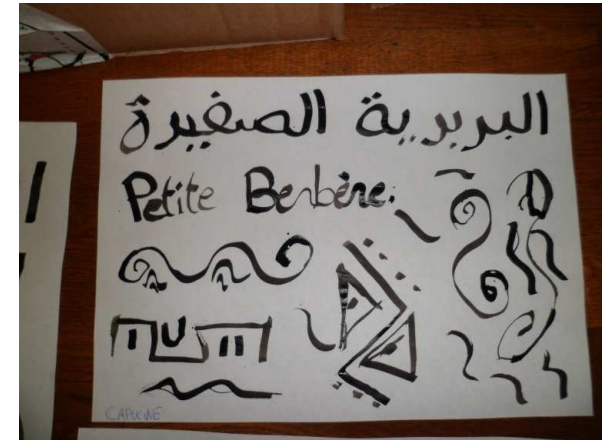 البربرية الصغيرة
Petite Berbère.
CAPUCINE